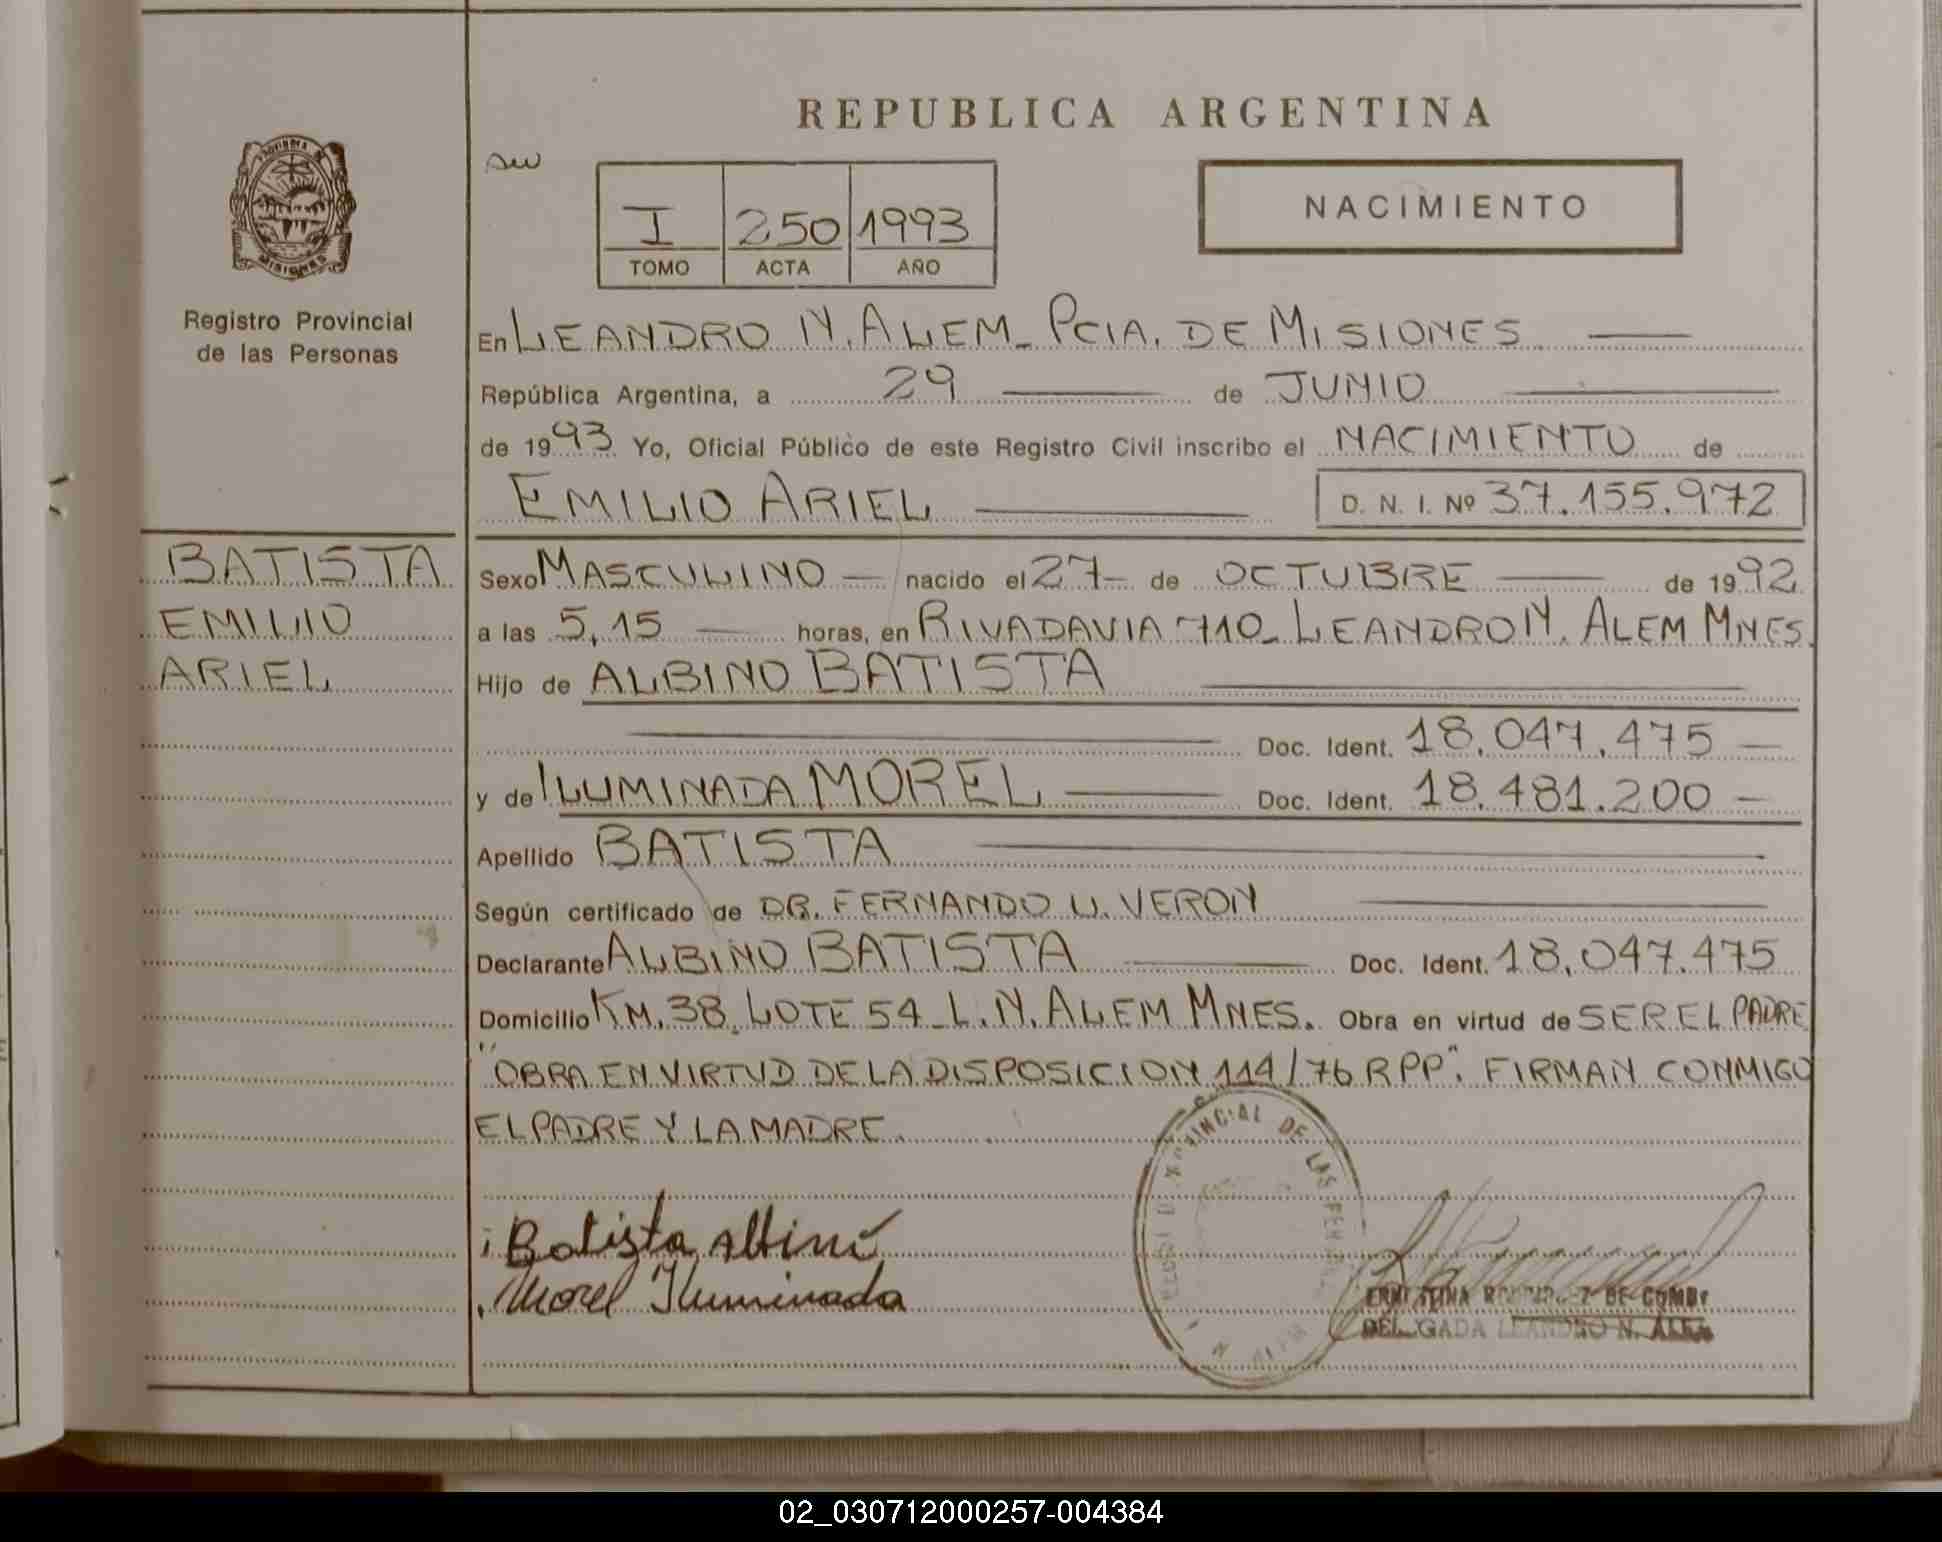 REPUBLICA ARGENTINA
PROVINCIA DE
MISIONES
Registro Provincial
de las Personas
I 250 1993
TOMO ACTA AÑO
NACIMIENTO
En LEANDRO N. ALEM - PCIA. DE MISIONES
República Argentina, a 29 de JUNIO
de 1993 Yo, Oficial Público de este Registro Civil inscribo el NACIMIENTO de
EMILIO ARIEL D. N. I. Nº 37.155.972
BATISTA
EMILIO
ARIEL
Sexo MASCULINO nacido el 27 de OCTUBRE de 1992
a las 5,15 horas, en RIVADAVIA 710 - LEANDRO N. ALEM MNES.
Hijo de ALBINO BATISTA
Doc. Ident. 18.047.475
y de ILUMINADA MOREL Doc. Ident. 18.481.200
Apellido BATISTA
Según certificado de DR. FERNANDO U. VERON
Declarante ALBINO BATISTA Doc. Ident. 18.047.475
Domicilio KM. 38 LOTE 54 - L.N. ALEM MNES. Obra en virtud de SER EL PADRE
"OBRA EN VIRTUD DE LA DISPOSICION 114/76 RPP". FIRMAN CONMIGO
EL PADRE Y LA MADRE.
Batista Albino
Morel Iluminada
PROVINCIAL DE LAS PER
DE
DELEGADA LEANDRO N. ALEM
02_030712000257-004384